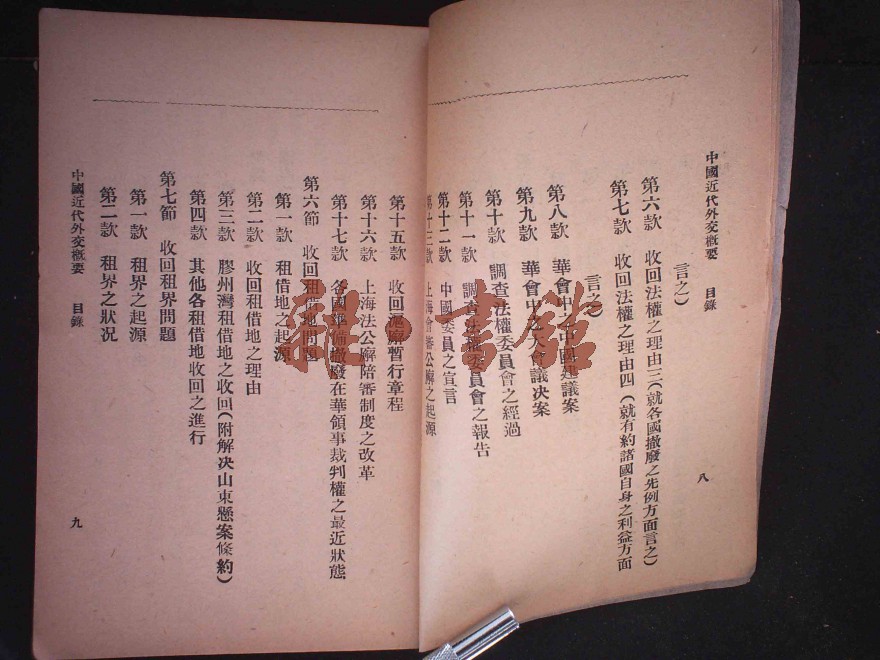 中國近代外交概要 目錄
言之)
第六款 收回法權之理由三(就各國撤廢之先例方面言之)
第七款 收回法權之理由四(就有約諸國自身之利益方面
言之)
第八款 華會中之中國建議案
第九款 華會中之大會議決案
第十款 調查法權委員會之經過
第十一款 調查法權委員會之報告
第十二款 中國委員之宣言
第十三款 上海會審公廨之起源
八
第十五款 收回滬廨暫行章程
第十六款 上海法公廨陪審制度之改革
第十七款 各國準備撤廢在華領事裁判權之最近狀態
第六節 收回租借地問題
第一款 租借地之起源
第二款 收回租借地之理由
第三款 膠州灣租借地之收回(附解決山東懸案條約)
第四款 其他各租借地收回之進行
第七節 收回租界問題
第一款 租界之起源
第二款 租界之狀况
中國近代外交概要 目錄
九